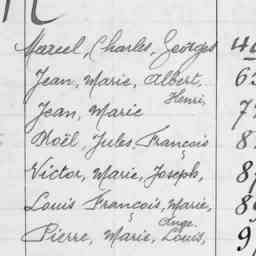 Marcel, Charles, Georges
Jean, Marie, Albert,
Henri,
Jean, Marie
Noël, Jules, François
Victor, Marie, Joseph,
Louis François, Marie,
Ange
Pierre, Marie, Louis,